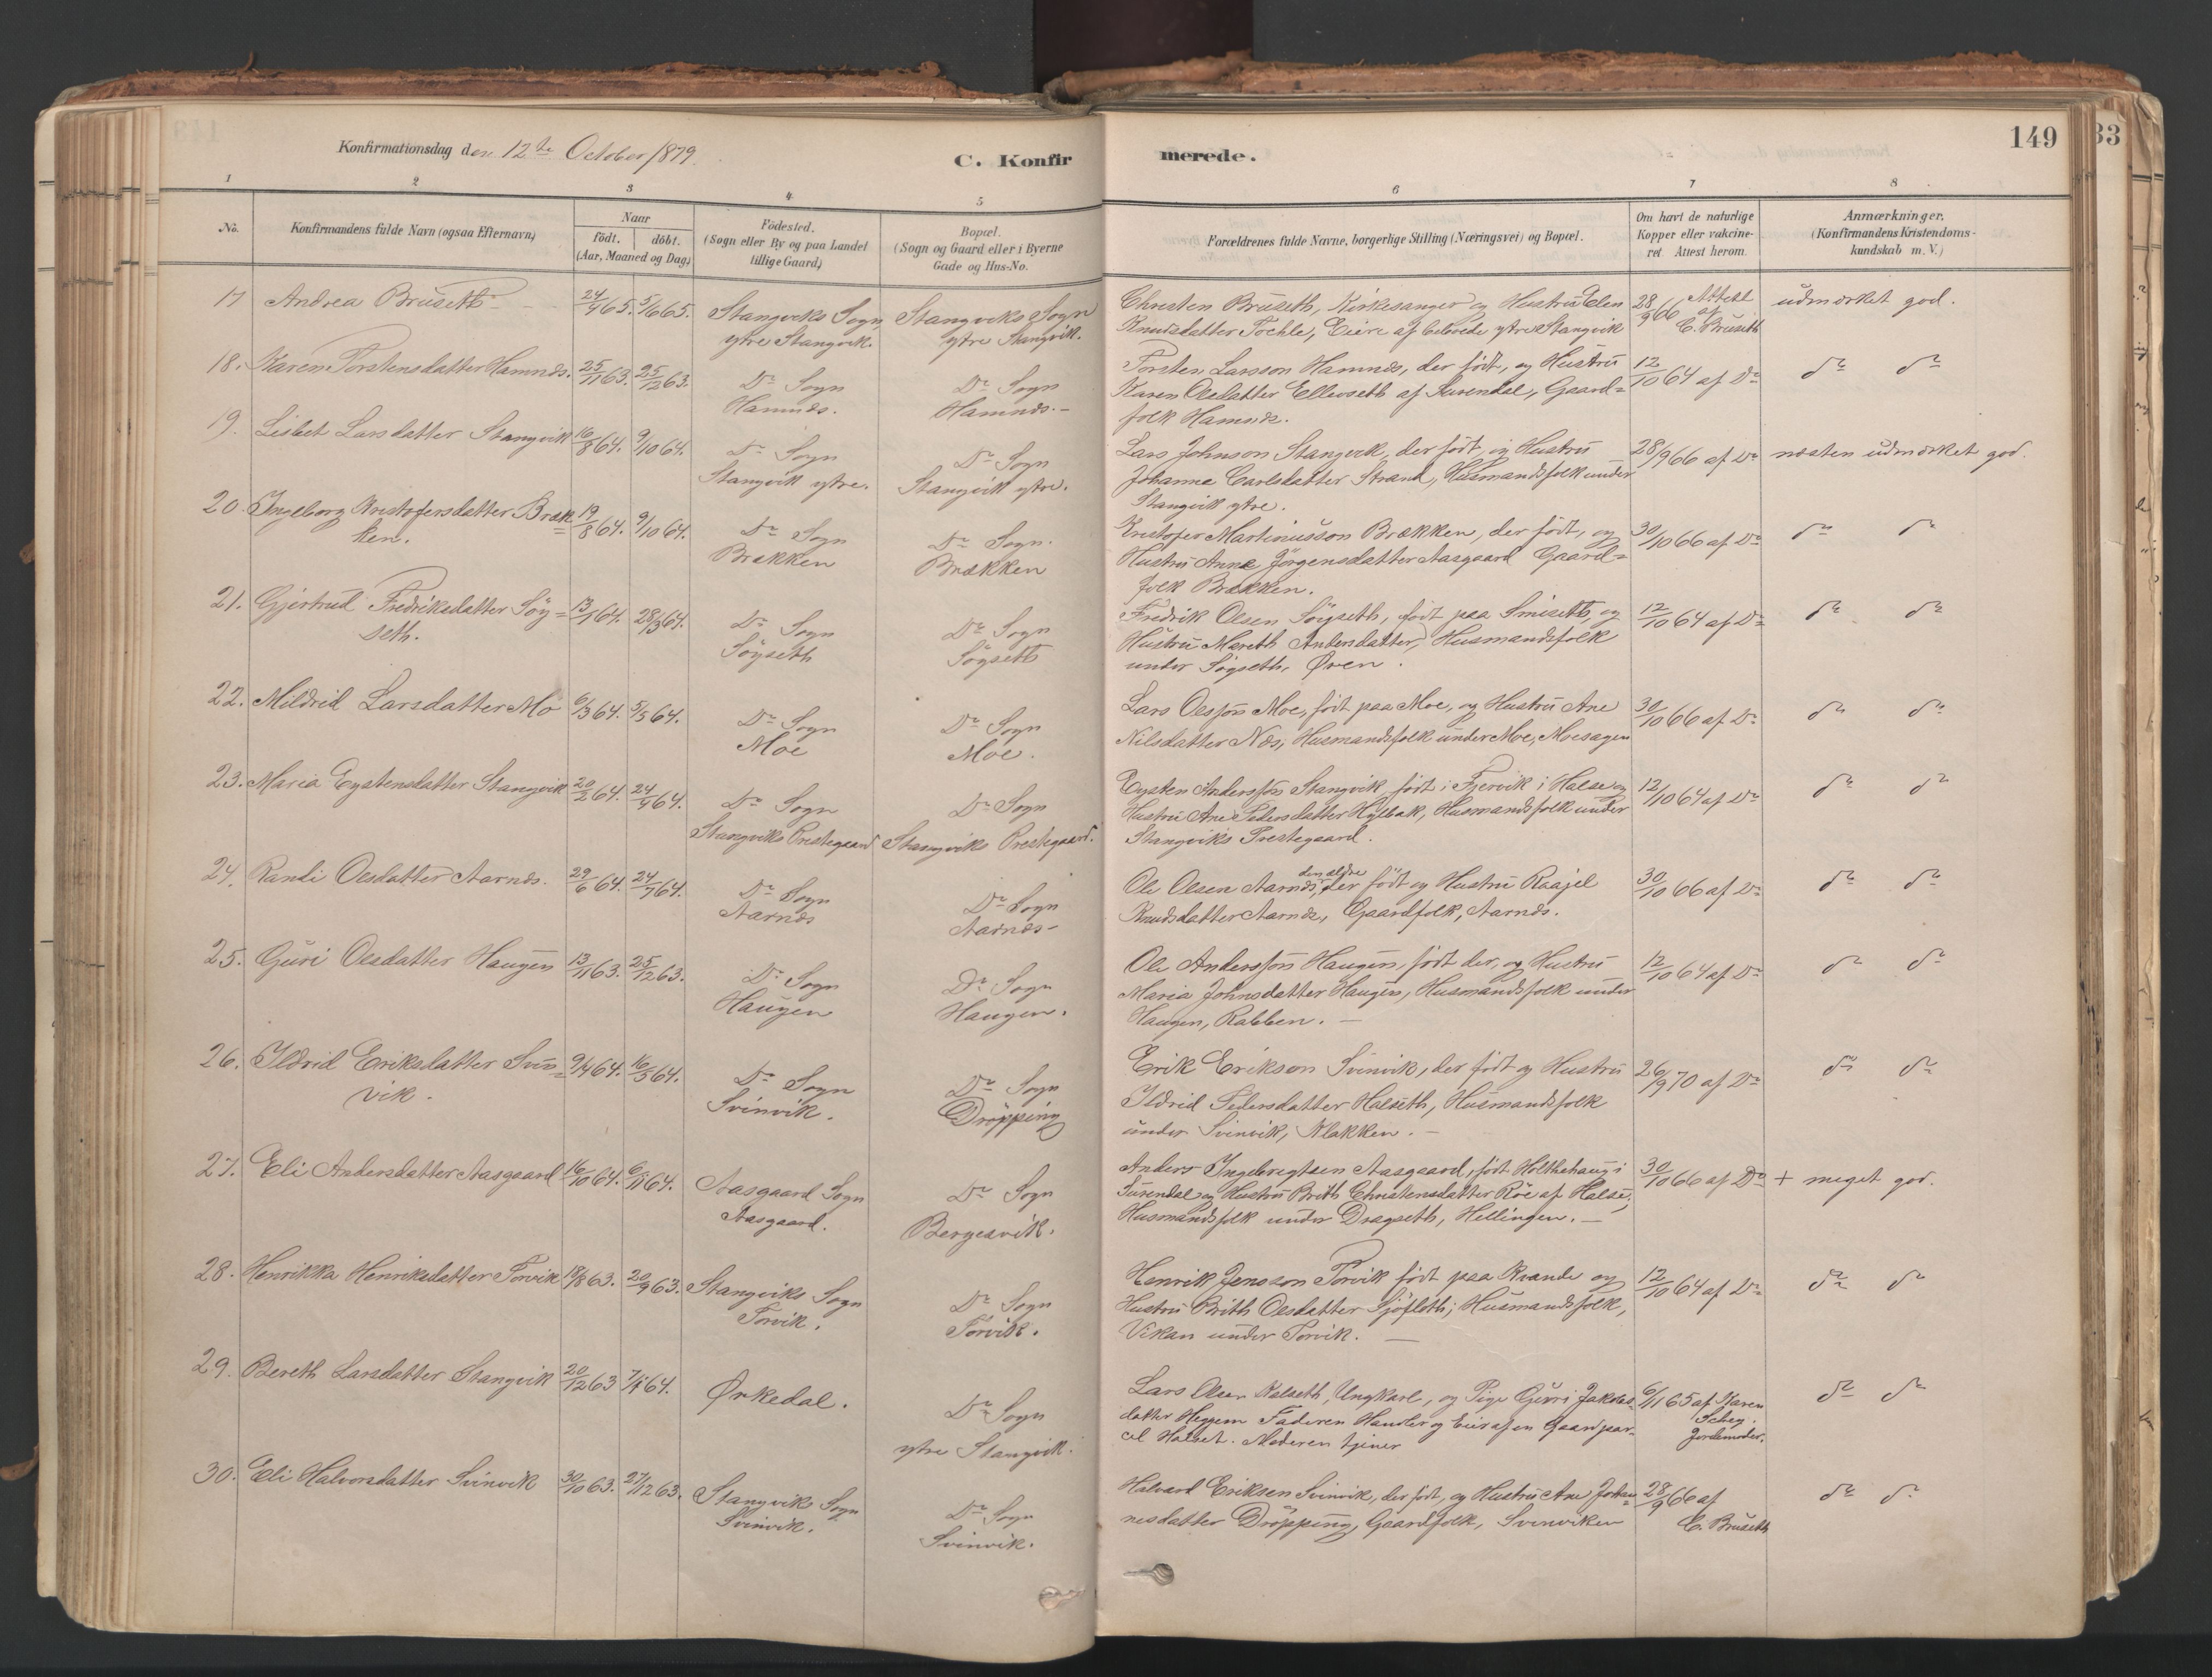 149
33
Konfirmationsdag den 12te October 1879.
C. Konfirmerede.
1 2 3 4 5 6 7 8
No.
Konfirmandens fulde Navn (ogsaa Efternavn)
Naar
födt. döbt.
(Aar, Maaned og Dag)
Födested.
(Sogn eller By og paa Landet
tillige Gaard)
Bopæl.
(Sogn og Gaard eller i Byerne
Gade og Hus-No.
Forældrenes fulde Navne, borgerlige Stilling (Næringsvei) og Bopæl.
Om havt de naturlige
Kopper eller vakcine-
ret. Attest herom.
Anmærkninger.
(Konfirmandens Kristendoms-
kundskab m. V.)
17 Andrea Bruseth 24/4 65. 5/6 65. Stangviks Sogn, Stangviks Sogn
ytre Stangvik. ytre Stangvik.
Christen Bruseth, Kirkesanger og Hustru Elen 28/9 66 Attest af udmærket god.
Knudsdatter Tochle, Eiere af ytre Stangvik C. Bruseth
18. Karen Torstensdatter Hamnæs. 25/11 63. 25/12 63. Do Sogn Do Sogn
Hamnæs. Hamnæs.-
Torsten Larsson Hamnæs, der födt, og Hustru 12/10 64 af Do do do
Karen Olesdatter Ellevseth af Surendal, Gaard=
folk Hamnæs.
19. Lisbet Larsdatter Stangvik 16/8 64. 9/10 64. Do Sogn Do Sogn
Stangvik ytre. Stangvik ytre.
Lars Johnson Stangvik, der födt, og Hustru 28/9 66 af Do næsten udmærket god.
Johanna Carlsdatter Strand, Husmandsfolk under
Stangvik ytre.
20. Ingeborg Kristofersdatter Bræk= 19/8 64. 9/10 64. Do Sogn Do Sogn.
ken. Brækken Brækken
Kristofer Martinusson Brækken, der födt, og 30/10 66 af Do do do
Hustru Anne Jörgensdatter Aasgaard Gaard=
folk Brækken.
21. Gjertrud Fredriksdatter Söy= 13/1 64. 28/3 64. Do Sogn Do Sogn
seth. Söyseth Söyseth
Fredrik Olsen Söyseth, födt paa Smiseth, og 12/10 64 af Do do do
Hustru Mareth Andersdatter, Husmandsfolk
under Söyseth, Øren.
22. Mildrid Larsdatter Mo 6/3 64. 5/5 64. Do Sogn Do Sogn
Moe Moe.
Lars Olesson Moe, födt paa Moe, og Hustru Ane 30/10 66 af Do do do
Nilsdatter Næs, Husmandsfolk under Moe, Moesagen
23. Maria Eystensdatter Stangvik 20/2 64. 24/4 64. Do Sogn Do Sogn
Stangviks Prestegaard Stangviks Prestegaard.
Eysten Andersson Stangvik, födt i Fjervik i Halse og 12/10 64 af Do do do
Hustru Ane Pedersdatter Hylbak, Husmandsfolk under
Stangviks Prestegaard.
24. Randi Olesdatter Aarnæs. 29/6 64. 24/7 64. Do Sogn Do Sogn
Aarnæs Aarnæs-
Ole Olsen Aarnæs, den ældre der födt og Hustru Raajel 30/10 66 af Do do do
Knudsdatter Aarnæs, Gaardfolk, Aarnæs.
25. Guri Olesdatter Haugen 13/11 63. 25/12 63. Do Sogn Do Sogn
Haugen Haugen.
Ole Andersson Haugen, födt der, og Hustru 12/10 64 af Do do do
Maria Johnsdatter Haugen, Husmandsfolk under
Haugen, Rabben. -
26. Ildrid Eriksdatter Svin= 9/4 64. 16/5 64. Do Sogn Do Sogn
vik. Svinvik. Dröpping
Erik Erikson Svinvik, der födt og Hustru 26/9 70 af Do do do
Ildrid Pedersdatter Halseth, Husmandsfolk
under Svinvik, Klakken. -
27. Eli Andersdatter Aasgaard 16/10 64. 6/11 64. Aasgaard Sogn Do Sogn
Aasgaard. Bergesvik.
Anders Ingebrigtsen Aasgaard, födt Holthehaug i 30/10 66 af Do + meget god.
Surendal og Hustru Brith Christensdatter Röe af Halse,
Husmandsfolk under Dragseth, Hellingen. -
28. Henrikka Henriksdatter Torvik 18/8 63. 20/9 63. Stangviks Sogn Do Sogn
Torvik. Torvik.
Henrik Jensson Torvik födt paa Kvande og 12/10 64 af Do do do
Hustru Brith Olesdatter Sjöfloth, Husmandsfolk,
Vikan under Torvik. -
29. Bereth Larsdatter Stangvik 20/12 63 7/1 64. Ørkedal. Do Sogn
ytre Stangvik.
Lars Olsen Halseth, Ungkarl, og Pige Gjuri Jakobs= 6/11 65 af Karen do do
datter Heggem Faderen Handler og Eier af en Gaardpar- Schey.
cel Halset. Moderen tjener Jordemoder.
30. Eli Halvorsdatter Svinvik 30/10 63. 27/12 63. Stangviks Sogn Do Sogn
Svinvik. Svinvik.
Halvard Eriksen Svinvik, der födt, og Hustru Ane Johan= 28/9 66 af do do
nesdatter Dröpping, Gaardfolk, Svinviken C. Bruseth